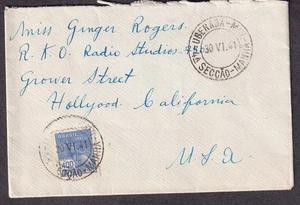 Miss Ginger Rogers.
R.K.O Radio Studios
Grower Street
Hollyood California
U.S.A
UBERABA
30 VI.41
SECCÃO
BRASIL
30 VI.41
400
SECCÃO